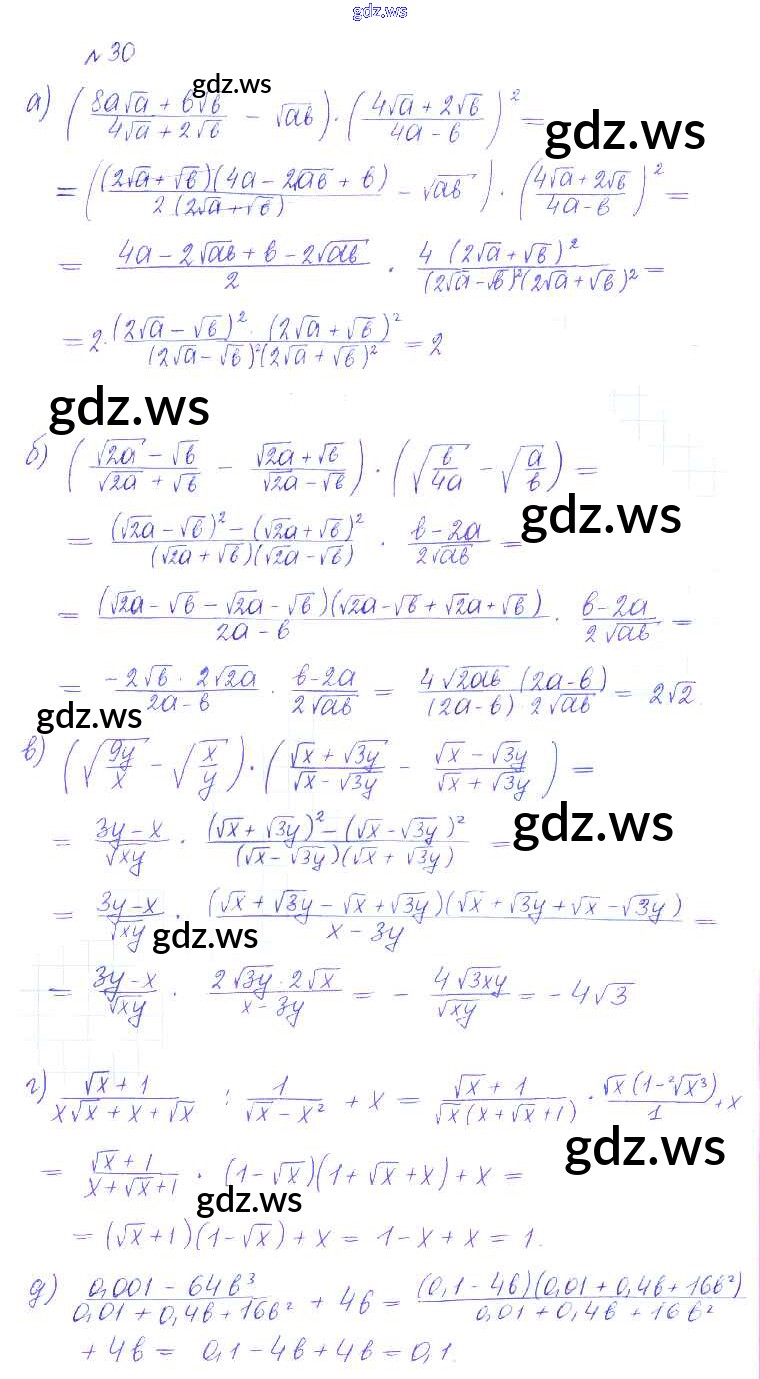 gdz.ws
№30
gdz.ws
а) ((8a√a + b√b)/(4√a + 2√b) − √ab) · ((4√a + 2√b)/(4a − b))² =
gdz.ws
= (((2√a + √b)(4a − 2√ab + b))/(2(2√a + √b)) − √ab) · ((4√a + 2√b)/(4a − b))² =
= (4a − 2√ab + b − 2√ab)/2 · (4(2√a + √b)²)/((2√a − √b)²(2√a + √b)²) =
= 2 · ((2√a − √b)² · (2√a + √b)²)/((2√a − √b)²(2√a + √b)²) = 2
gdz.ws
б) ((√2a − √b)/(√2a + √b) − (√2a + √b)/(√2a − √b)) · (√(b/4a) − √(a/b)) =
gdz.ws
= ((√2a − √b)² − (√2a + √b)²)/((√2a + √b)(√2a − √b)) · (b − 2a)/(2√ab) =
= ((√2a − √b − √2a − √b)(√2a − √b + √2a + √b))/(2a − b) · (b − 2a)/(2√ab) =
= (−2√b · 2√2a)/(2a − b) · (b − 2a)/(2√ab) = (4√2ab (2a − b))/((2a − b) 2√ab) = 2√2.
gdz.ws
в) (√(9y/x) − √(x/y)) · ((√x + √3y)/(√x − √3y) − (√x − √3y)/(√x + √3y)) =
gdz.ws
= (3y − x)/√xy · ((√x + √3y)² − (√x − √3y)²)/((√x − √3y)(√x + √3y)) =
= (3y − x)/√xy · ((√x + √3y − √x + √3y)(√x + √3y + √x − √3y))/(x − 3y) =
gdz.ws
= (3y − x)/√xy · (2√3y · 2√x)/(x − 3y) = − (4√3xy)/√xy = −4√3
г) (√x + 1)/(x√x + x + √x) : 1/(√x − x²) + x = (√x + 1)/(√x(x + √x + 1)) · (√x(1 − ²√x³))/1 + x
gdz.ws
= (√x + 1)/(x + √x + 1) · (1 − √x)(1 + √x + x) + x =
gdz.ws
= (√x + 1)(1 − √x) + x = 1 − x + x = 1.
д) (0,001 − 64b³)/(0,01 + 0,4b + 16b²) + 4b = ((0,1 − 4b)(0,01 + 0,4b + 16b²))/(0,01 + 0,4b + 16b²)
+ 4b = 0,1 − 4b + 4b = 0,1.